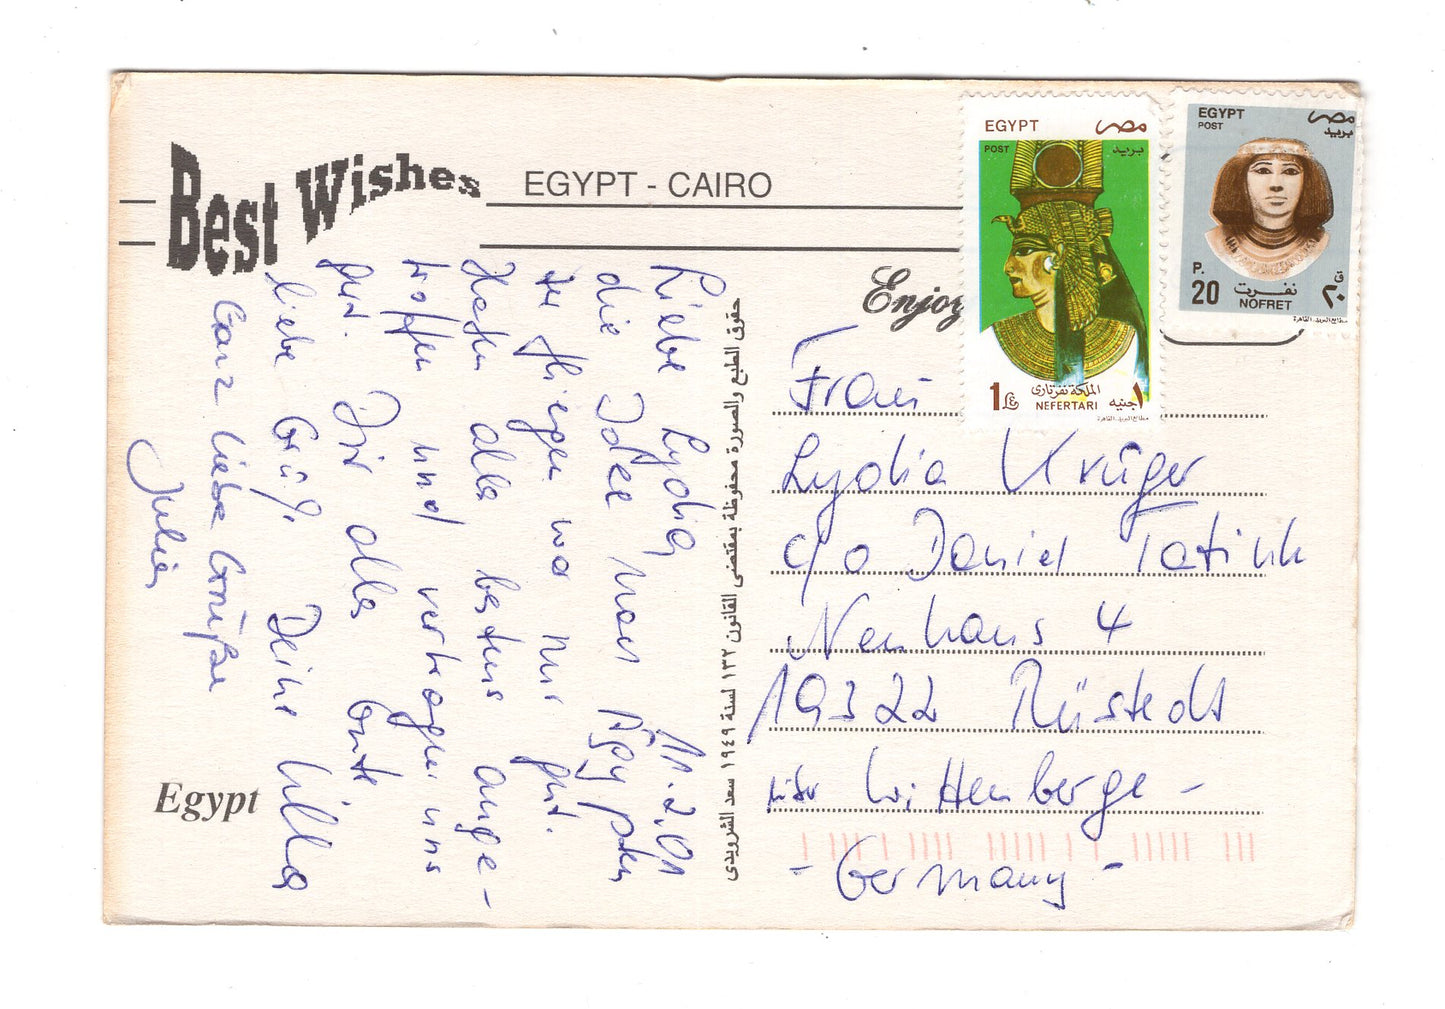 Best Wishes
EGYPT - CAIRO
Enjoy
EGYPT مصر
POST بريد
1 £ الملكة نفرتارى ١ جنيه
NEFERTARI
مطابع البريد - القاهرة
EGYPT مصر
POST بريد
P. ق
20 نفرت ٢٠
NOFRET
مطابع البريد - القاهرة
11.2.01
Liebe Lydia,
die Idee nach Ägypten
zu fliegen war nur gut.
Haben alles bestens ange-
troffen und vertragen uns
gut. Dir alles Gute
liebe Grüße Deine Ulla
Ganz liebe Grüße
Julia
Egypt
حقوق الطبع والصورة محفوظة بمقتضى القانون ١٣٢ لسنة ١٩٤٩ سعد الشرويدى
Frau
Lydia Krüger
c/o Daniel Tatink
Neuhaus 4
19322 Rüstedt
über Wittenberge -
- Germany -